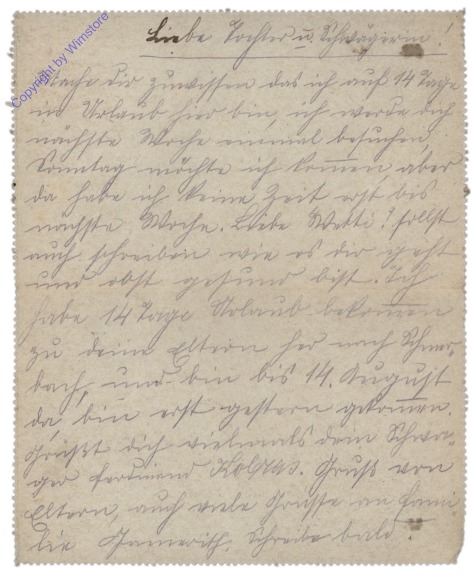 Liebe Tochter u. Schwägerin!
Mache dir zuwissen das ich auf 14 Tage
in Urlaub hier bin, ich werde dich
nächste Woche einmal besuchen,
Sonntag möchte ich kom̄en aber
da habe ich keine Zeit erst bis
nachste Woche. Liebe Wetti! sollst
auch schreiben wie es dir geht
und obst gesund bist. Ich
habe 14 Tage Urlaub bekom̄en
zu deine Eltern her nach
bach, und bin bis 14. August
da, bin erst gestern gekom̄en.
Grüßt dich vielmals dein Schwa-
ger Ferdinand Gruß von
Eltern, auch viele Grüße an Fami
lie Schreibe bald!
Copyright by Wimstore